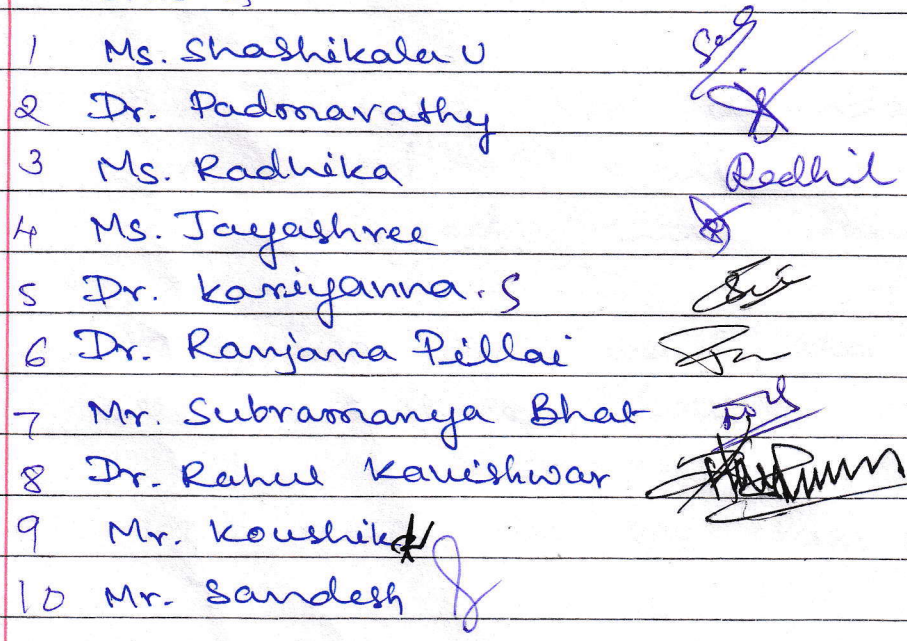 1 Ms. Shashikala U
2 Dr. Padmavathy
3 Ms. Radhika
4 Ms. Jayashree
5 Dr. Kariyanna. S
6 Dr. Ranjana Pillai
7 Mr. Subramanya Bhat
8 Dr. Rahul Kavishwar
9 Mr. Koushik
10 Mr. Sandesh